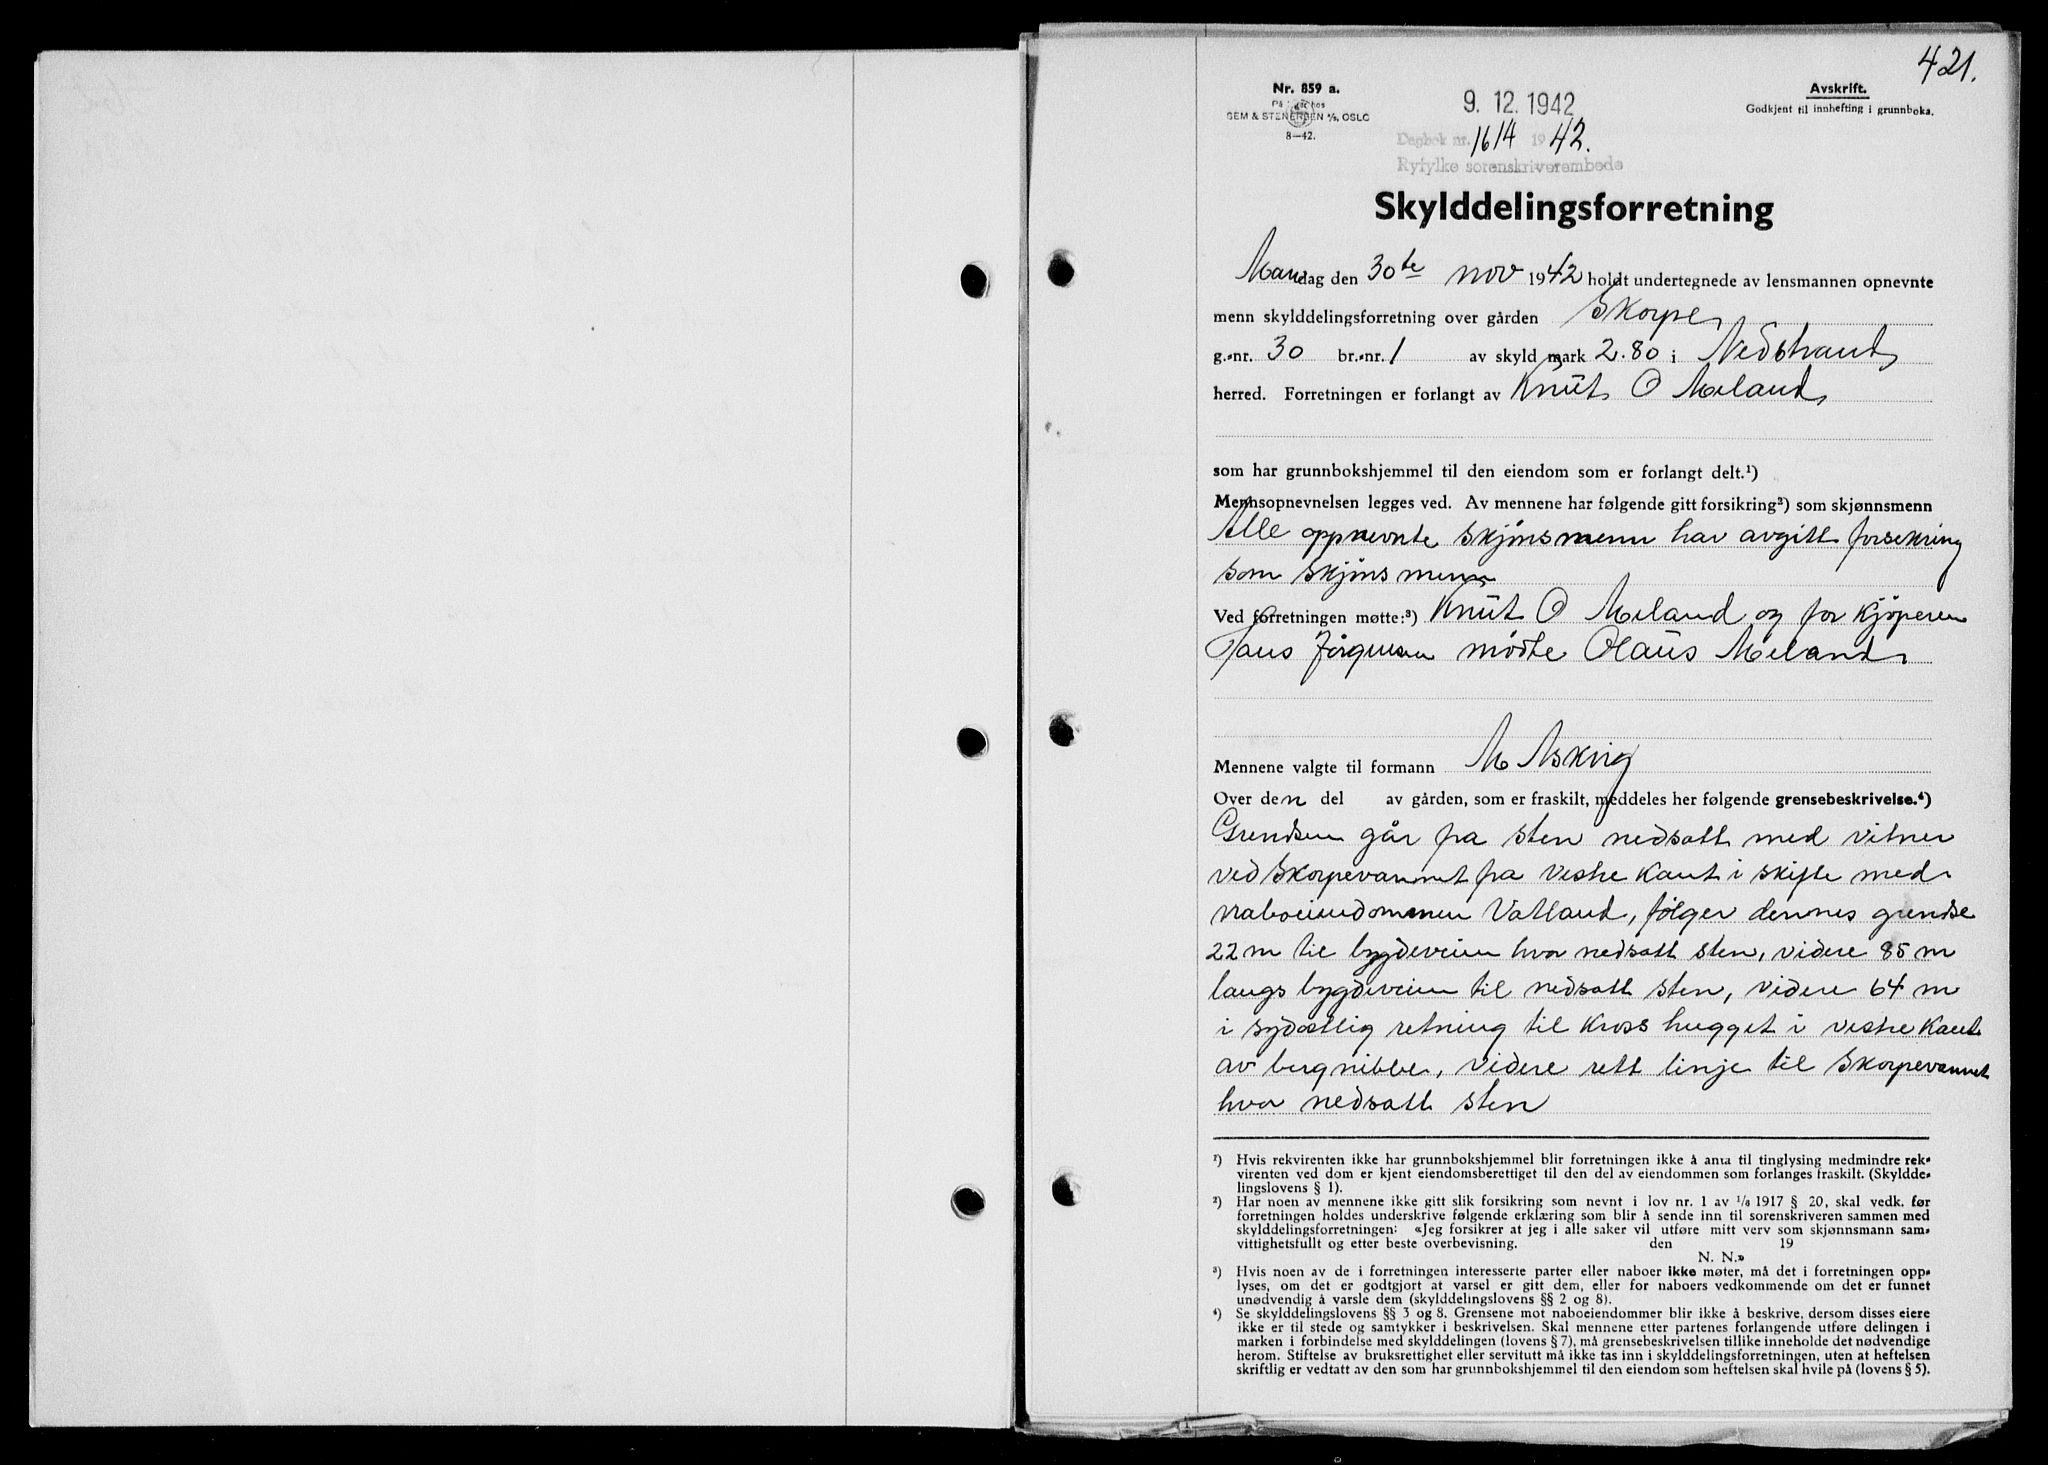 421.
Nr. 859 a.
SEM & STENERSEN A/S, OSLO
8—42.
9. 12. 1942
Dagbok nr. 1614 1942.
Ryfylke sorenskriverembede
Avskrift.
Godkjent til innhefting i grunnboka.
Skylddelingsforretning
Mandag den 30te nov 1942 holdt undertegnede av lensmannen opnevnte
menn skylddelingsforretning over gården Skorpe
g.-nr. 30 br.-nr. 1 av skyld mark 2.80 i Nedstrand
herred. Forretningen er forlangt av Knut O Meland
som har grunnbokshjemmel til den eiendom som er forlangt delt.¹)
Mennsopnevnelsen legges ved. Av mennene har følgende gitt forsikring²) som skjønnsmenn
Alle oppnevnte skjønsmenn har avgitt forsekring
som skjønsmenn
Ved forretningen møtte:³) Knut O Meland og for kjøperen
Hans Jørgensen mødte Olaus Meland
Mennene valgte til formann M Askvig
Over den del av gården, som er fraskilt, meddeles her følgende grensebeskrivelse.⁴)
Grendsen går fra sten nedsatt med vitner
ved Skorpevannet fra vestre kant i skifte med
naboeiendommen Vatland, følger dennes grendse
22 m til bygdeveien hvor nedsatt sten, videre 85 m
langs bygdeveien til nedsatt sten, videre 64 m
i sydøstlig retning til kross hugget i vestre kant
av bergnibbe, videre rett linje til Skorpevannet
hvor nedsatt sten
¹) Hvis rekvirenten ikke har grunnbokshjemmel blir forretningen ikke å anta til tinglysing medmindre rek-
virenten ved dom er kjent eiendomsberettiget til den del av eiendommen som forlanges fraskilt. (Skyldde-
lingslovens § 1).
²) Har noen av mennene ikke gitt slik forsikring som nevnt i lov nr. 1 av ¹/₈ 1917 § 20, skal vedk. før
forretningen holdes underskrive følgende erklæring som blir å sende inn til sorenskriveren sammen med
skylddelingsforretningen: «Jeg forsikrer at jeg i alle saker vil utføre mitt verv som skjønnsmann sam-
vittighetsfullt og etter beste overbevisning. den 19
N. N.»
³) Hvis noen av de i forretningen interesserte parter eller naboer ikke møter, må det i forretningen opp-
lyses, om det er godtgjort at varsel er gitt dem, eller for naboers vedkommende om det er funnet
unødvendig å varsle dem (skylddelingslovens §§ 2 og 8).
⁴) Se skylddelingslovens §§ 3 og 8. Grensene mot naboeiendommer blir ikke å beskrive, dersom disses eiere
ikke er til stede og samtykker i beskrivelsen. Skal mennene etter partenes forlangende utføre delingen i
marken i forbindelse med skylddelingen (lovens § 7), må grensebeskrivelsen tillike inneholde det nødvendige
herom. Stiftelse av bruksrettighet eller servitutt må ikke tas inn i skylddelingsforretningen, uten at heftelsen
skriftlig er vedtatt av den som har grunnbokshjemmel til den eiendom som heftelsen skal hvile på (lovens § 5).